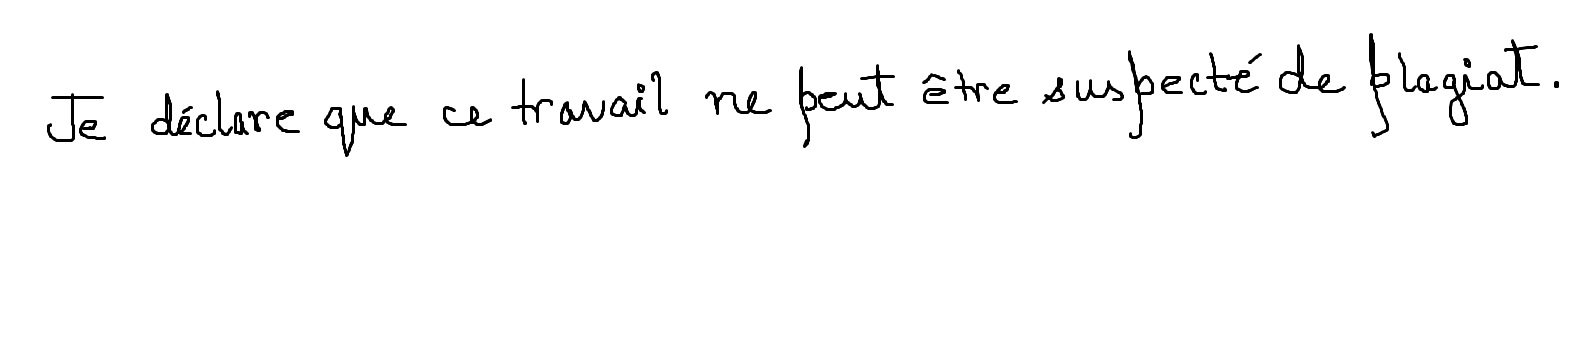 Je déclare que ce travail ne peut être suspecté de plagiat.